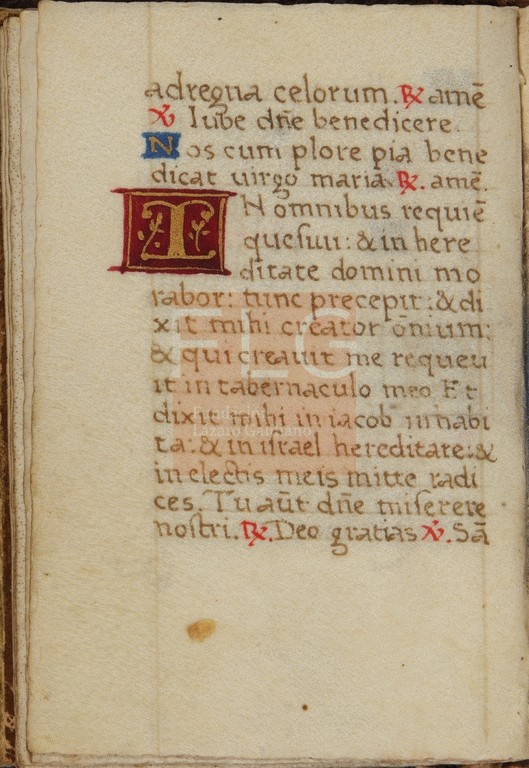 ad regna celorum. ℟ amē
℣ Iube dn̄e benedicere.
Nos cum plore pia bene
dicat uirgo maria ℟. amē.
IN omnibus requiē
quesiui: & in here
ditate domini mo
rabor: tunc precepit: & di
xit mihi creator om̄ium:
& qui creauit me requeu
it in tabernaculo meo Et
dixit mihi in iacob inhabi
ta: & in israel hereditare: &
in electis meis mitte radi
ces. Tu aūt dn̄e miserere
nostri. ℟. Deo gratias ℣. Sā
FLG
Fundación
Lázaro Galdiano